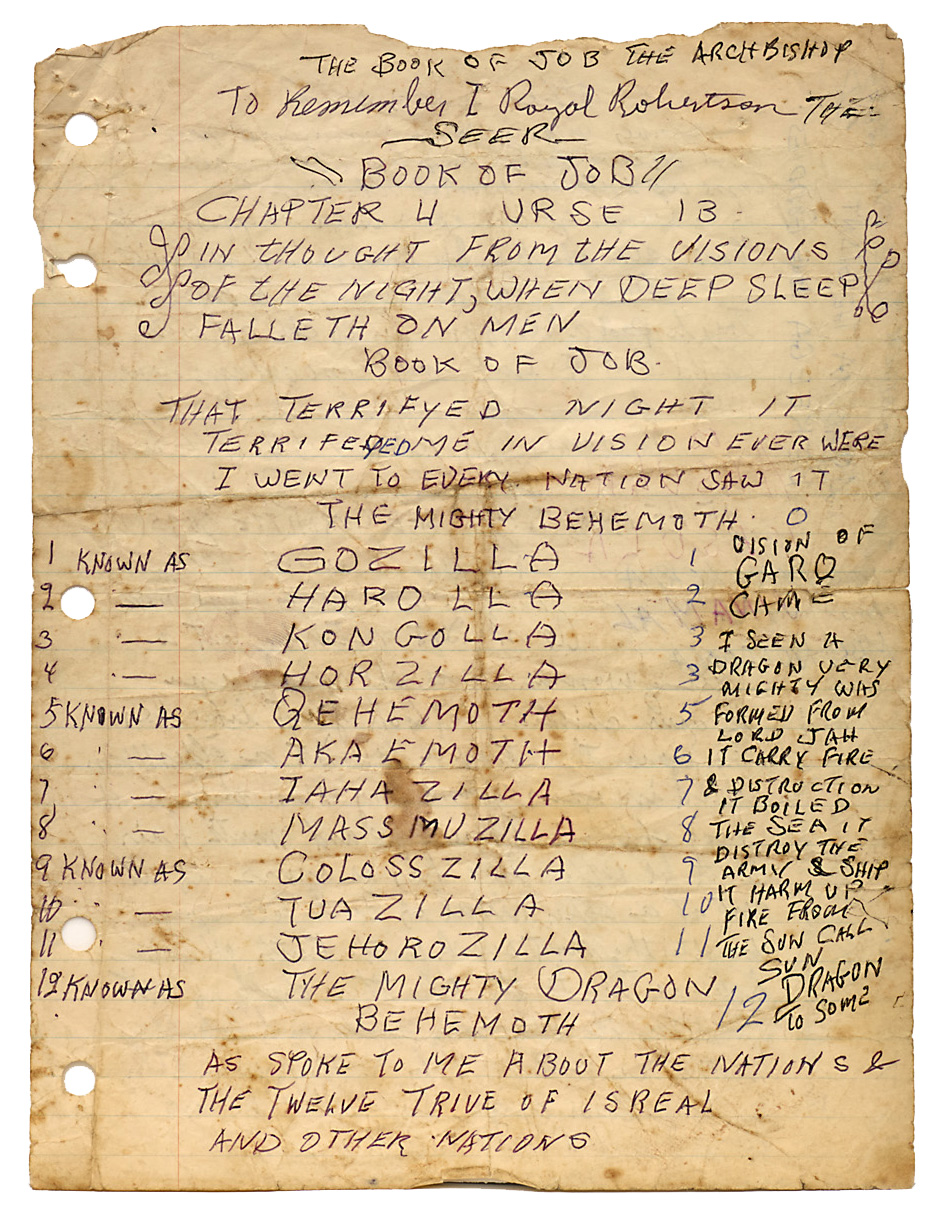 THE BOOK OF JOB THE ARCHBISHOP
To Remember I Royal Robertson THE
SEER
BOOK OF JOB
CHAPTER 4 VRSE 13
IN THOUGHT FROM THE VISIONS
OF THE NIGHT, WHEN DEEP SLEEP
FALLETH ON MEN
BOOK OF JOB.
THAT TERRIFYED NIGHT IT
ME IN VISION EVER WERE
I WENT TO EVERY NATION SAW IT
THE MIGHTY BEHEMOTH. 0
1 KNOWN AS GOZILLA 1 VISION OF
GARO
2 — HAROLLA 2 CAME
3 — KONGOLLA 3 I SEEN A
4 — HORZILLA 3 DRAGON VERY
MIGHTY WAS
5 KNOWN AS QEHEMOTH 5 FORMED FROM
LORD JAH
6 — AKAEMOTH 6 IT CARRY FIRE
7 — IAHAZILLA 7 & DISTRUCTION
IT BOILED
8 — MASSMUZILLA 8 THE SEA IT
DISTROY THE
9 KNOWN AS COLOSSZILLA 9 ARMY & SHIP
10 — TUAZILLA 10 IT HARM UP
FIRE FROM
11 — JEHOROZILLA 11 THE SUN CALL
SUN
12 KNOWN AS THE MIGHTY DRAGON 12 DRAGON
BEHEMOTH TO SOME
AS SPOKE TO ME ABOUT THE NATIONS &
THE TWELVE TRIVE OF ISREAL
AND OTHER NATIONS